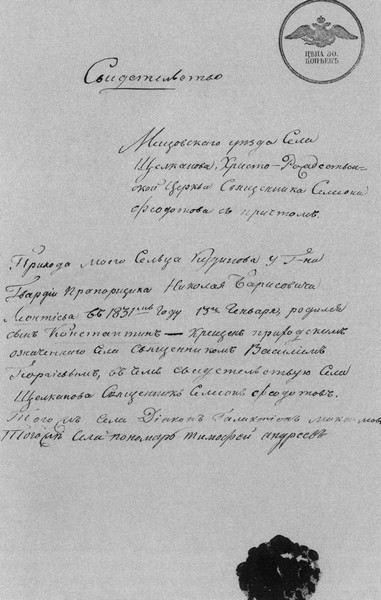 ЦѢНА 30.
КОПѢЕКЪ.
Свидетельство
Мещовскаго уѣзда Села
Щелканова, Христо-Рождественской
Церкви Священника Симеона
Феодотова съ причтомъ.
Прихода моего Сельца Кудинова у Г-на
Гвардіи Прапорщика Николая Барисовича
Леонтьева въ 1831мъ Году 13го Генваря, родился
сынъ Константинъ — Крещенъ приходскимъ
означеннаго Села Священникомъ Василіемъ
Георгіевымъ, въ чемъ свидетельствую Села
Щелканова Священникъ Симеонъ Феодотовъ.
Тогожъ Села Діаконъ Галактіонъ
Тогожъ Села пономарь тимофей андреевъ